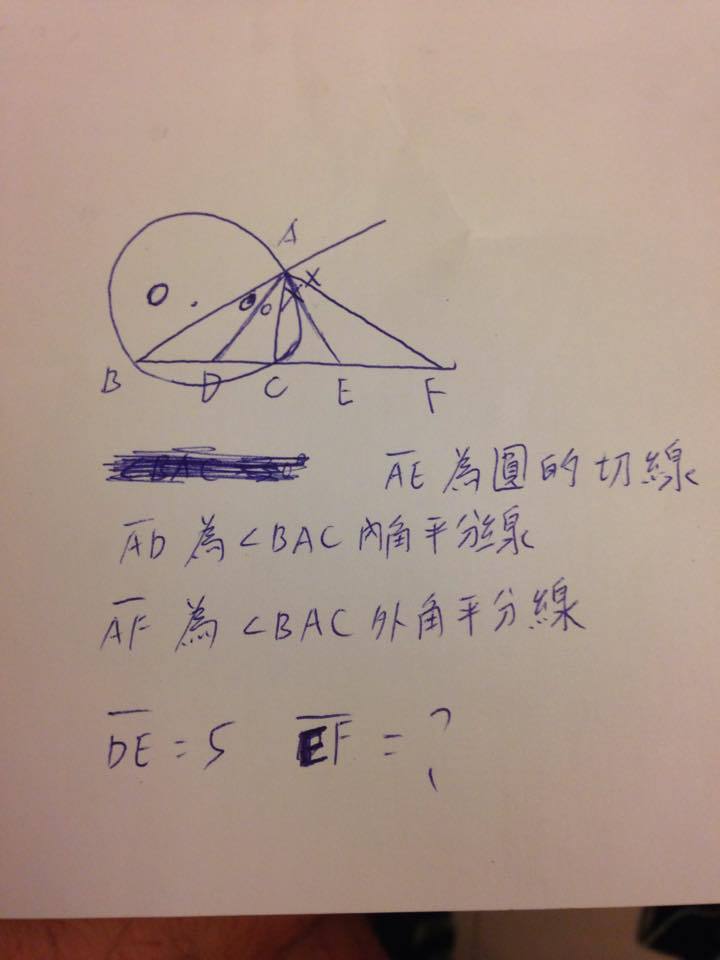 A
O
X
B D C E F
AE為圓的切線
AD為∠BAC內角平分線
AF為∠BAC外角平分線
DE=5 EF=?